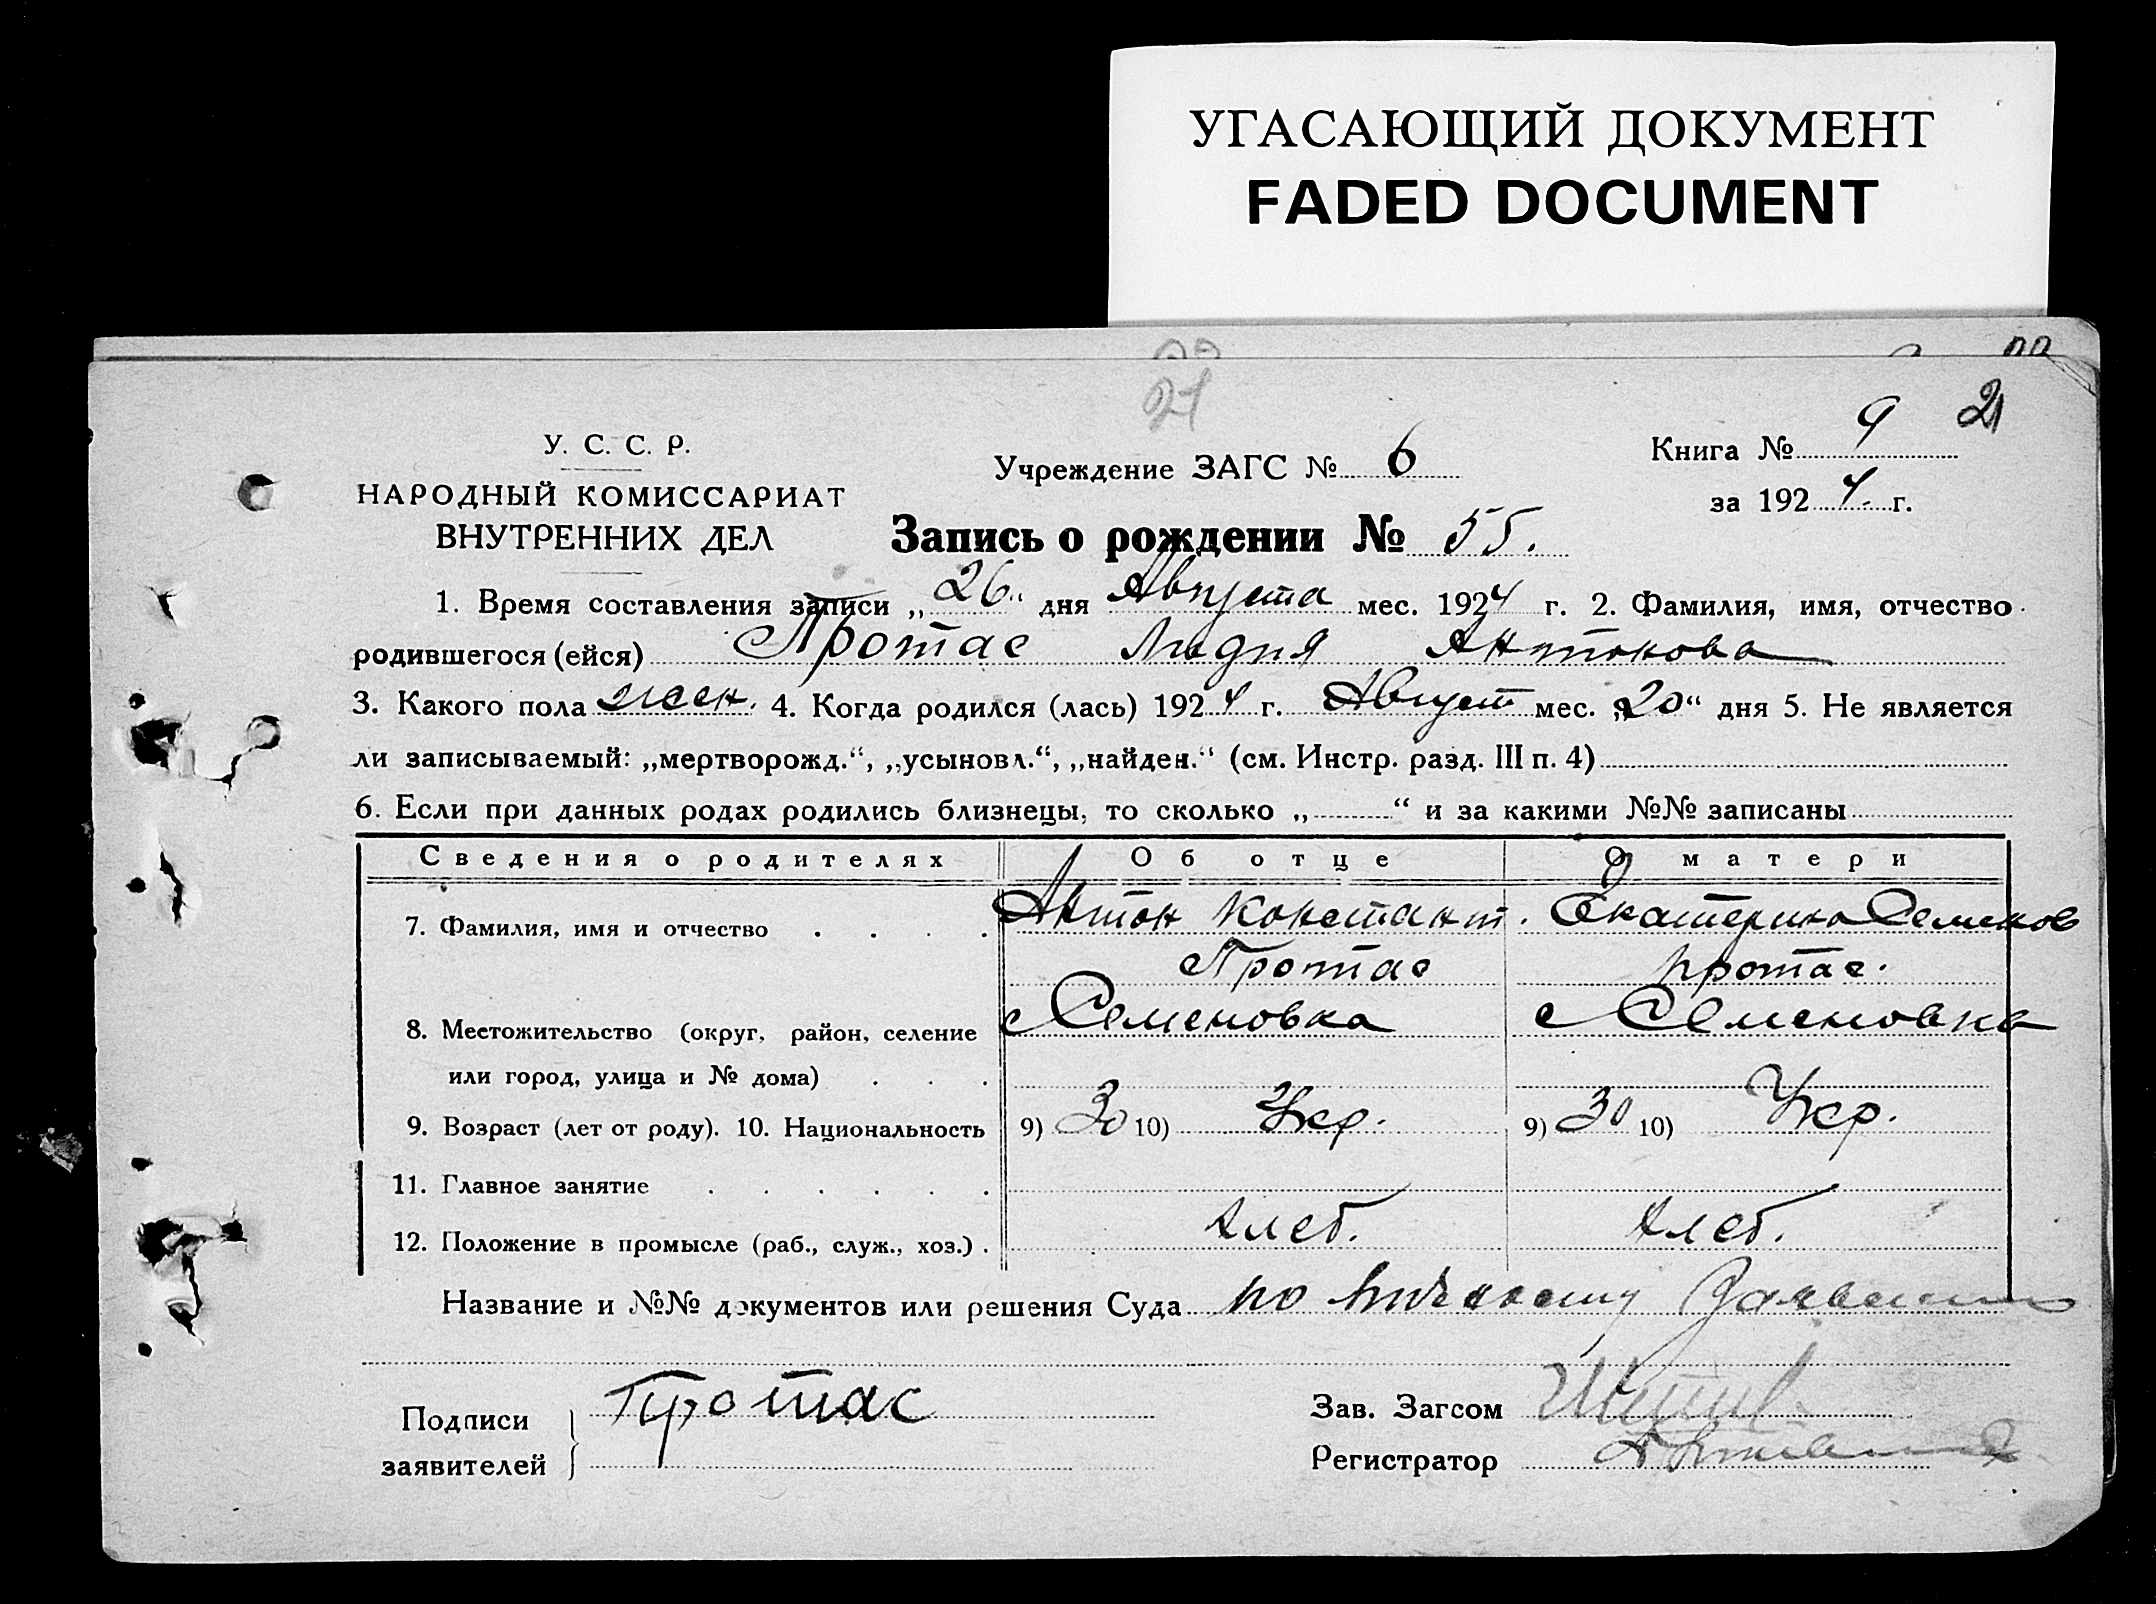 УГАСАЮЩИЙ ДОКУМЕНТ
FADED DOCUMENT
21
21
У. С. С. Р.
НАРОДНЫЙ КОМИССАРИАТ
ВНУТРЕННИХ ДЕЛ
Учреждение ЗАГС № 6
Книга № 9
за 1924 г.
Запись о рождении № 55.
1. Время составления записи „26“ дня Августа мес. 1924 г. 2. Фамилия, имя, отчество
родившегося (ейся) Протас Лидия Антонова
3. Какого пола жен. 4. Когда родился (лась) 1924 г. Август мес. „20“ дня 5. Не является
ли записываемый: „мертворожд.“, „усыновл.“, „найден.“ (см. Инстр. разд. III п. 4)
6. Если при данных родах родились близнецы, то сколько „ “ и за какими №№ записаны
Сведения о родителях Об отце О матери
7. Фамилия, имя и отчество Антон Констант. Екатерина Семенов
Протас Протас.
8. Местожительство (округ, район, селение с Семеновка с Семеновка
или город, улица и № дома)
9. Возраст (лет от роду). 10. Национальность 9) 30 10) Укр. 9) 30 10) Укр.
11. Главное занятие
12. Положение в промысле (раб., служ., хоз.) хлеб. хлеб.
Название и №№ документов или решения Суда по личному
Подписи
заявителей
Протас
Зав. Загсом
Регистратор